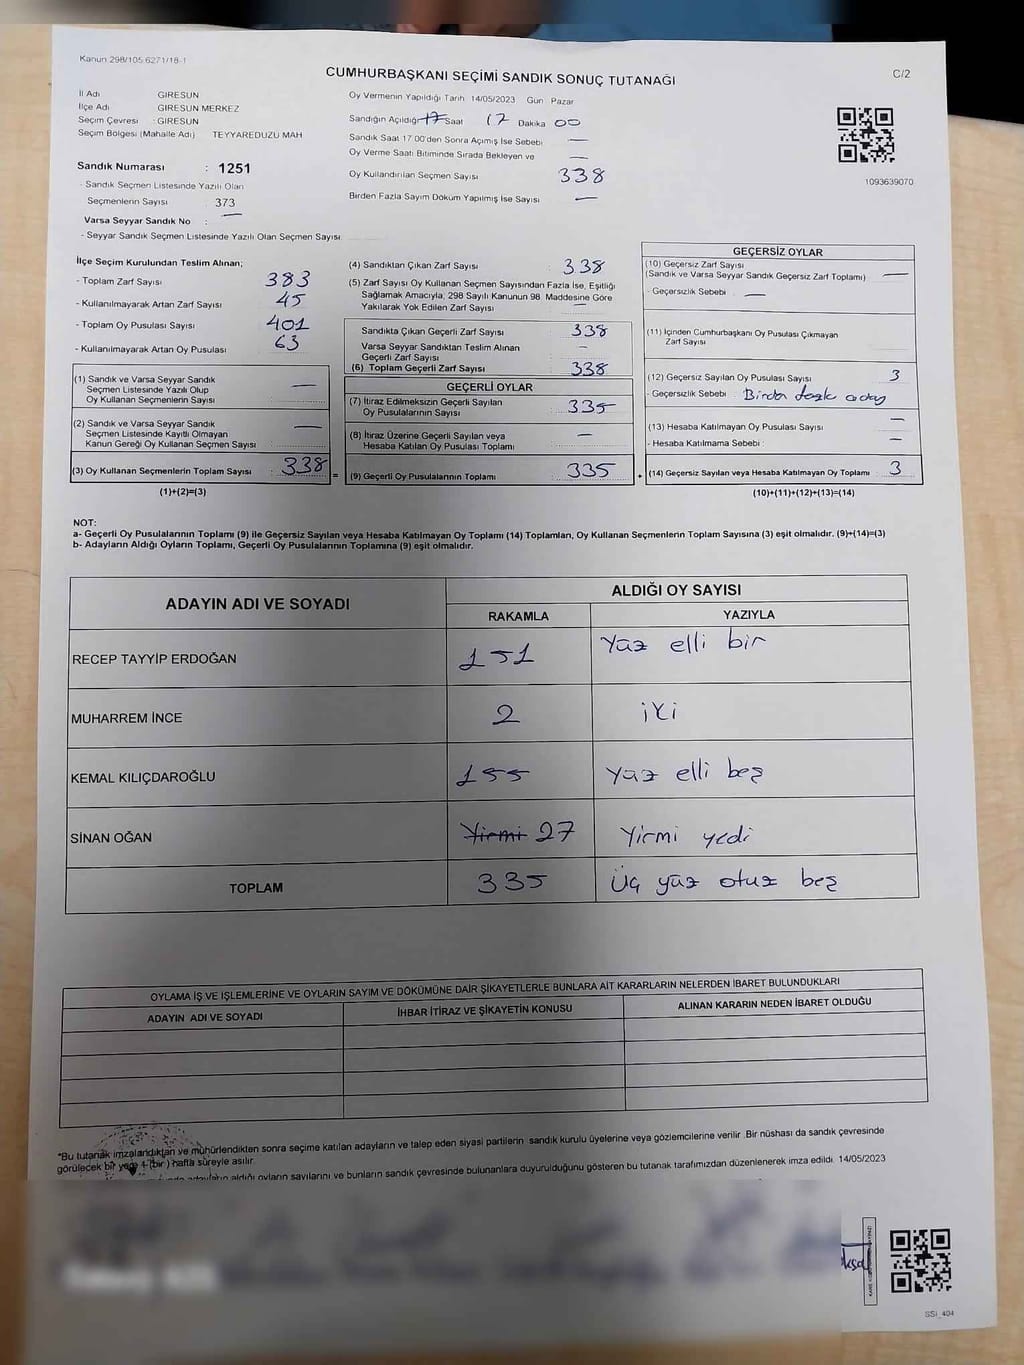 Kanun 298/105 6271/18-1
CUMHURBAŞKANI SEÇİMİ SANDIK SONUÇ TUTANAĞI
C/2
İl Adı GİRESUN
İlçe Adı GİRESUN MERKEZ
Seçim Çevresi : GİRESUN
Seçim Bölgesi (Mahalle Adı) TEYYAREDÜZÜ MAH
Sandık Numarası : 1251
- Sandık Seçmen Listesinde Yazılı Olan
Seçmenlerin Sayısı : 373
Varsa Seyyar Sandık No : —
- Seyyar Sandık Seçmen Listesinde Yazılı Olan Seçmen Sayısı
Oy Vermenin Yapıldığı Tarih 14/05/2023 Gün Pazar
Sandığın Açıldığı 17 Saat 17 Dakika 00
Sandık Saat 17.00'den Sonra Açımış İse Sebebi —
Oy Verme Saati Bitiminde Sırada Bekleyen ve —
Oy Kullandırılan Seçmen Sayısı 338
Birden Fazla Sayım Döküm Yapılmış İse Sayısı —
1093639070
İlçe Seçim Kurulundan Teslim Alınan;
- Toplam Zarf Sayısı 383
- Kullanılmayarak Artan Zarf Sayısı 45
- Toplam Oy Pusulası Sayısı 401
- Kullanılmayarak Artan Oy Pusulası 63
(1) Sandık ve Varsa Seyyar Sandık
Seçmen Listesinde Yazılı Olup
Oy Kullanan Seçmenlerin Sayısı —
(2) Sandık ve Varsa Seyyar Sandık
Seçmen Listesinde Kayıtlı Olmayan
Kanun Gereği Oy Kullanan Seçmen Sayısı —
(3) Oy Kullanan Seçmenlerin Toplam Sayısı 338 =
(1)+(2)=(3)
(4) Sandıktan Çıkan Zarf Sayısı 338
(5) Zarf Sayısı Oy Kullanan Seçmen Sayısından Fazla İse, Eşitliği
Sağlamak Amacıyla, 298 Sayılı Kanunun 98. Maddesine Göre
Yakılarak Yok Edilen Zarf Sayısı —
Sandıkta Çıkan Geçerli Zarf Sayısı 338
Varsa Seyyar Sandıktan Teslim Alınan
Geçerli Zarf Sayısı —
(6) Toplam Geçerli Zarf Sayısı 338
GEÇERLİ OYLAR
(7) İtiraz Edilmeksizin Geçerli Sayılan
Oy Pusulalarının Sayısı 335
(8) İtiraz Üzerine Geçerli Sayılan veya
Hesaba Katılan Oy Pusulası Toplamı —
(9) Geçerli Oy Pusulalarının Toplamı 335 +
GEÇERSİZ OYLAR
(10) Geçersiz Zarf Sayısı
(Sandık ve Varsa Seyyar Sandık Geçersiz Zarf Toplamı) —
- Geçersizlik Sebebi : —
(11) İçinden Cumhurbaşkanı Oy Pusulası Çıkmayan
Zarf Sayısı
(12) Geçersiz Sayılan Oy Pusulası Sayısı 3
- Geçersizlik Sebebi : Birden fazla aday
(13) Hesaba Katılmayan Oy Pusulası Sayısı —
- Hesaba Katılmama Sebebi : —
(14) Geçersiz Sayılan veya Hesaba Katılmayan Oy Toplamı 3
(10)+(11)+(12)+(13)=(14)
NOT:
a- Geçerli Oy Pusulalarının Toplamı (9) ile Geçersiz Sayılan veya Hesaba Katılmayan Oy Toplamı (14) Toplamları, Oy Kullanan Seçmenlerin Toplam Sayısına (3) eşit olmalıdır. (9)+(14)=(3)
b- Adayların Aldığı Oyların Toplamı, Geçerli Oy Pusulalarının Toplamına (9) eşit olmalıdır.
ADAYIN ADI VE SOYADI
ALDIĞI OY SAYISI
RAKAMLA YAZIYLA
RECEP TAYYİP ERDOĞAN 151 Yüz elli bir
MUHARREM İNCE 2 iki
KEMAL KILIÇDAROĞLU 155 Yüz elli beş
SİNAN OĞAN Yirmi 27 Yirmi yedi
TOPLAM 335 Üç yüz otuz beş
OYLAMA İŞ VE İŞLEMLERİNE VE OYLARIN SAYIM VE DÖKÜMÜNE DAİR ŞİKAYETLERLE BUNLARA AİT KARARLARIN NELERDEN İBARET BULUNDUKLARI
ADAYIN ADI VE SOYADI İHBAR İTİRAZ VE ŞİKAYETİN KONUSU ALINAN KARARIN NEDEN İBARET OLDUĞU
*Bu tutanak imzalandıktan ve mühürlendikten sonra seçime katılan adayların ve talep eden siyasi partilerin sandık kurulu üyelerine veya gözlemcilerine verilir. Bir nüshası da sandık çevresinde
görülecek bir yere 1 (bir) hafta süreyle asılır.
adayların aldığı oyların sayılarını ve bunların sandık çevresinde bulunanlara duyurulduğunu gösteren bu tutanak tarafımızdan düzenlenerek imza edildi. 14/05/2023
SSİ_404